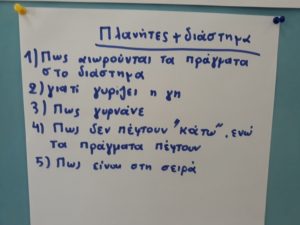 Πλανήτες + διάστημα
1) Πως αιωρούνται τα πράγματα
στο διάστημα
2) γιατί γυρίζει η γη
3) Πως γυρνάνε
4) Πως δεν πέφτουν "κάτω", ενώ
τα πράγματα πέφτουν
5) Πως είναι στη σειρά